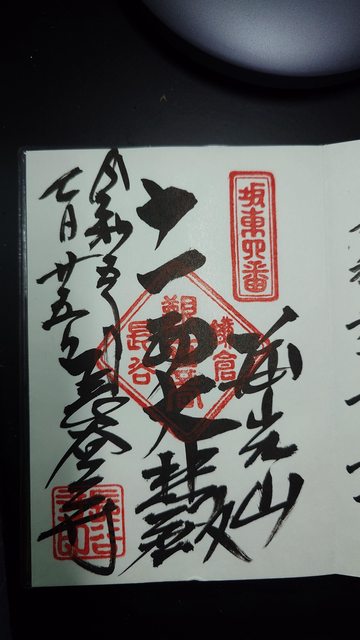 坂東四番
海光山
鎌倉
十一面大悲殿
長谷
令和五年
七月廿五日
長谷寺